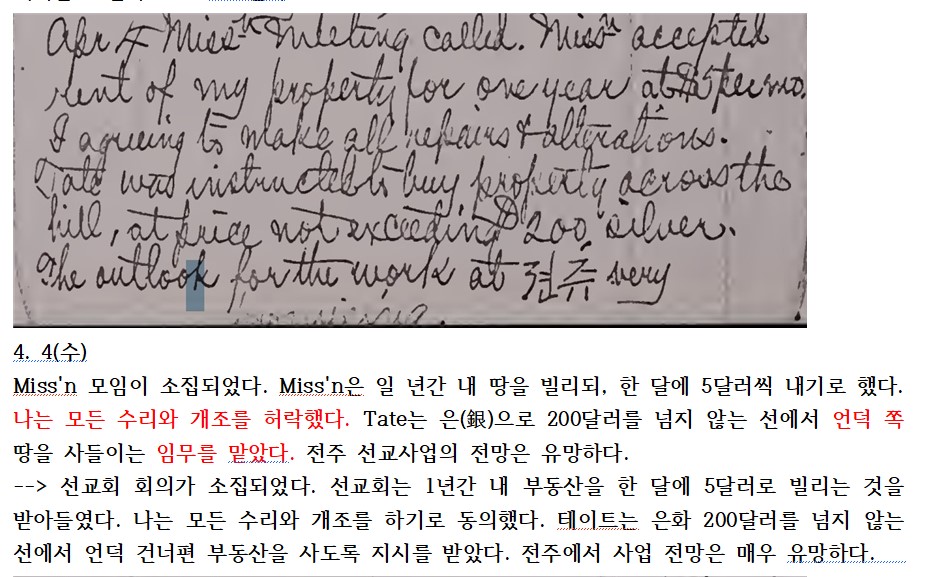 Apr 4 Miss'n Meeting called. Miss'n accepted
rent of my property for one year at $5 per mo.
I agreeing to make all repairs & alterations.
Tate was instructed to buy property across the
hill, at price not exceeding $200 silver.
The outlook for the work at 전주 very
4. 4(수)
Miss'n 모임이 소집되었다. Miss'n은 일 년간 내 땅을 빌리되, 한 달에 5달러씩 내기로 했다.
나는 모든 수리와 개조를 허락했다. Tate는 은(銀)으로 200달러를 넘지 않는 선에서 언덕 쪽
땅을 사들이는 임무를 맡았다. 전주 선교사업의 전망은 유망하다.
--> 선교회 회의가 소집되었다. 선교회는 1년간 내 부동산을 한 달에 5달러로 빌리는 것을
받아들였다. 나는 모든 수리와 개조를 하기로 동의했다. 테이트는 은화 200달러를 넘지 않는
선에서 언덕 건너편 부동산을 사도록 지시를 받았다. 전주에서 사업 전망은 매우 유망하다.